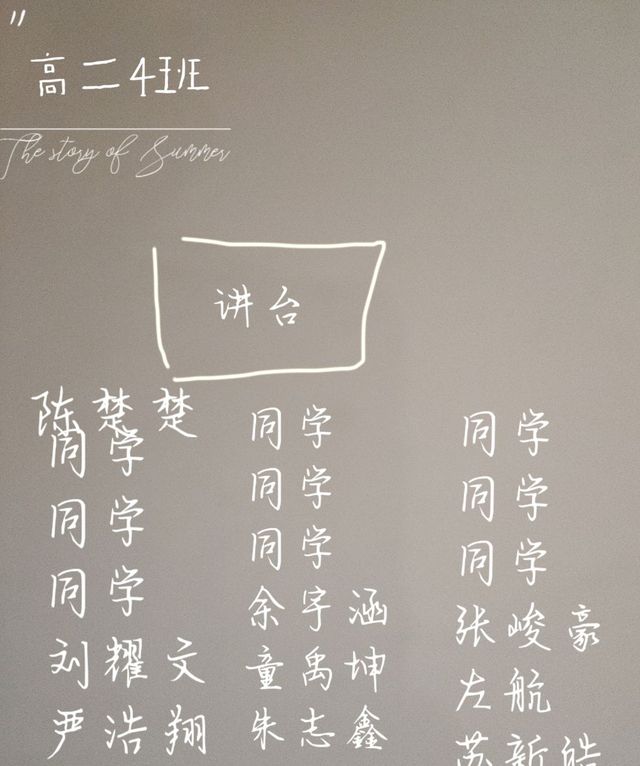 "
高二4班
The story of Summer
讲台
陈楚楚
同学
同学
同学
刘耀文
严浩翔
同学
同学
同学
余宇涵
童禹坤
朱志鑫
同学
同学
同学
张峻豪
左航
苏新皓